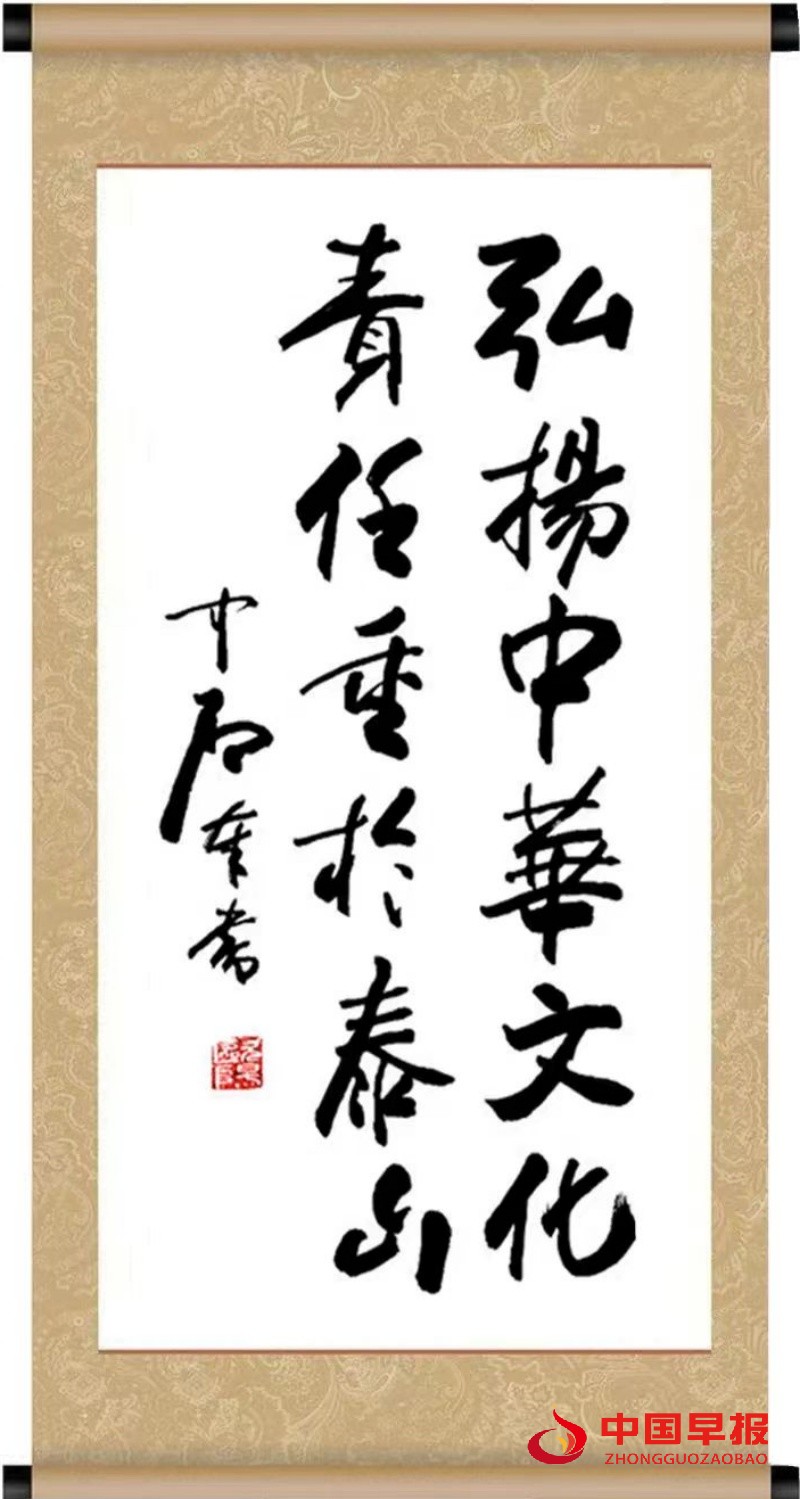 弘揚中華文化
責任重於泰山
中国早报
ZHONGGUOZAOBAO